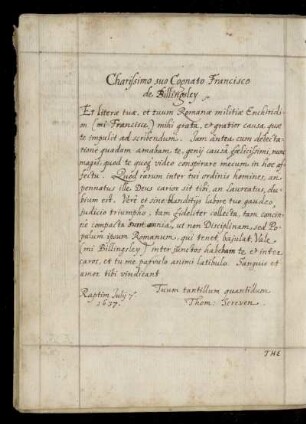 Charissimo suo Cognato Francisco
de Billingsley
Et literæ tuæ, et tuum Romanæ militiæ Enchiridi-
on (mi Francisce) mihi grata, et gratior causa quæ
te impulit ad scribendum. Iam dutea cum delecta-
tione quadam amabam te, genij causâ fœlicissimi, nunc
magis, quod te quoq video conspirare mecum in hoc af-
fectu. Quod eorum inter tui ordinis homines, an
pennatus ille Deus carior sit tibi, an Laureatus, du-
bium est. Vere et sine blanditijs labore tuo gaudeo,
judicio triumpho, tam fideliter collecta, tam concin-
nè compacta sunt omnia, ut non Disciplinam, sed Po-
pulum ipsum Romanum, qui tenet, bajulat. Vale
(mi Billingsley) inter sanctos habebam te, et inter
caros, et tu me parvulo animi latibulo. Sanguis et
amor tibi vinditant
Raptim Julij 7º
1637.
Tuum tantillum quantulum
Thom: Scriven.
THE